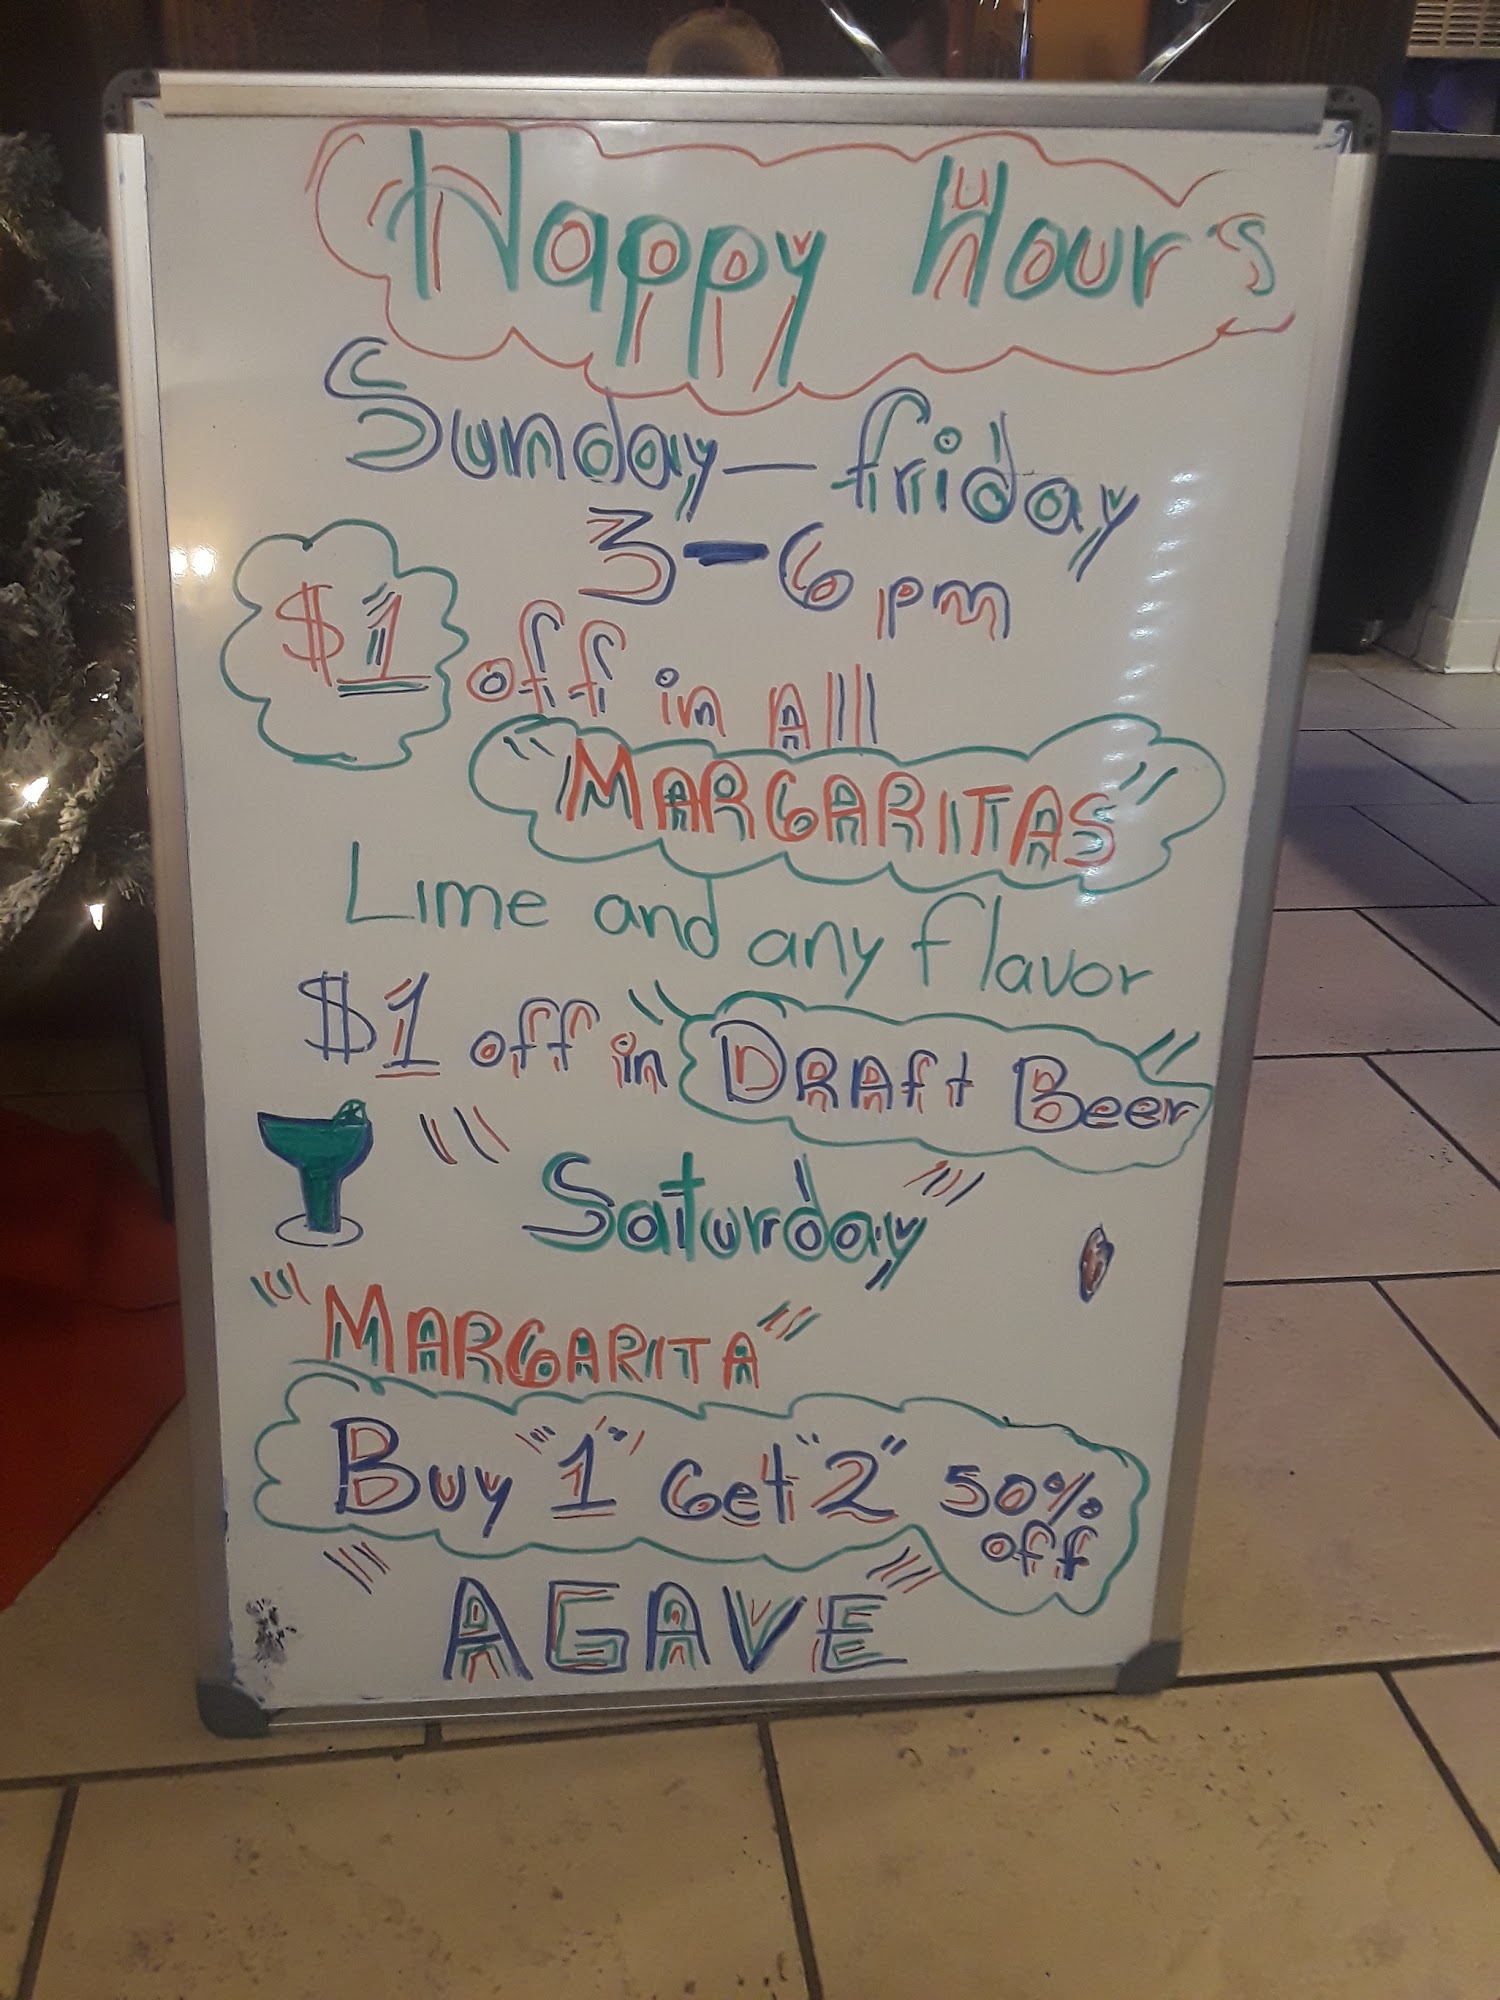 Happy Hour's
Sunday — friday
3 - 6 pm
$1 off in All
"MARGARITAS"
Lime and any flavor
$1 off in "DRAft Beer"
"Saturday"
"MARGARITA"
Buy "1" Get "2" 50% off
"AGAVE"